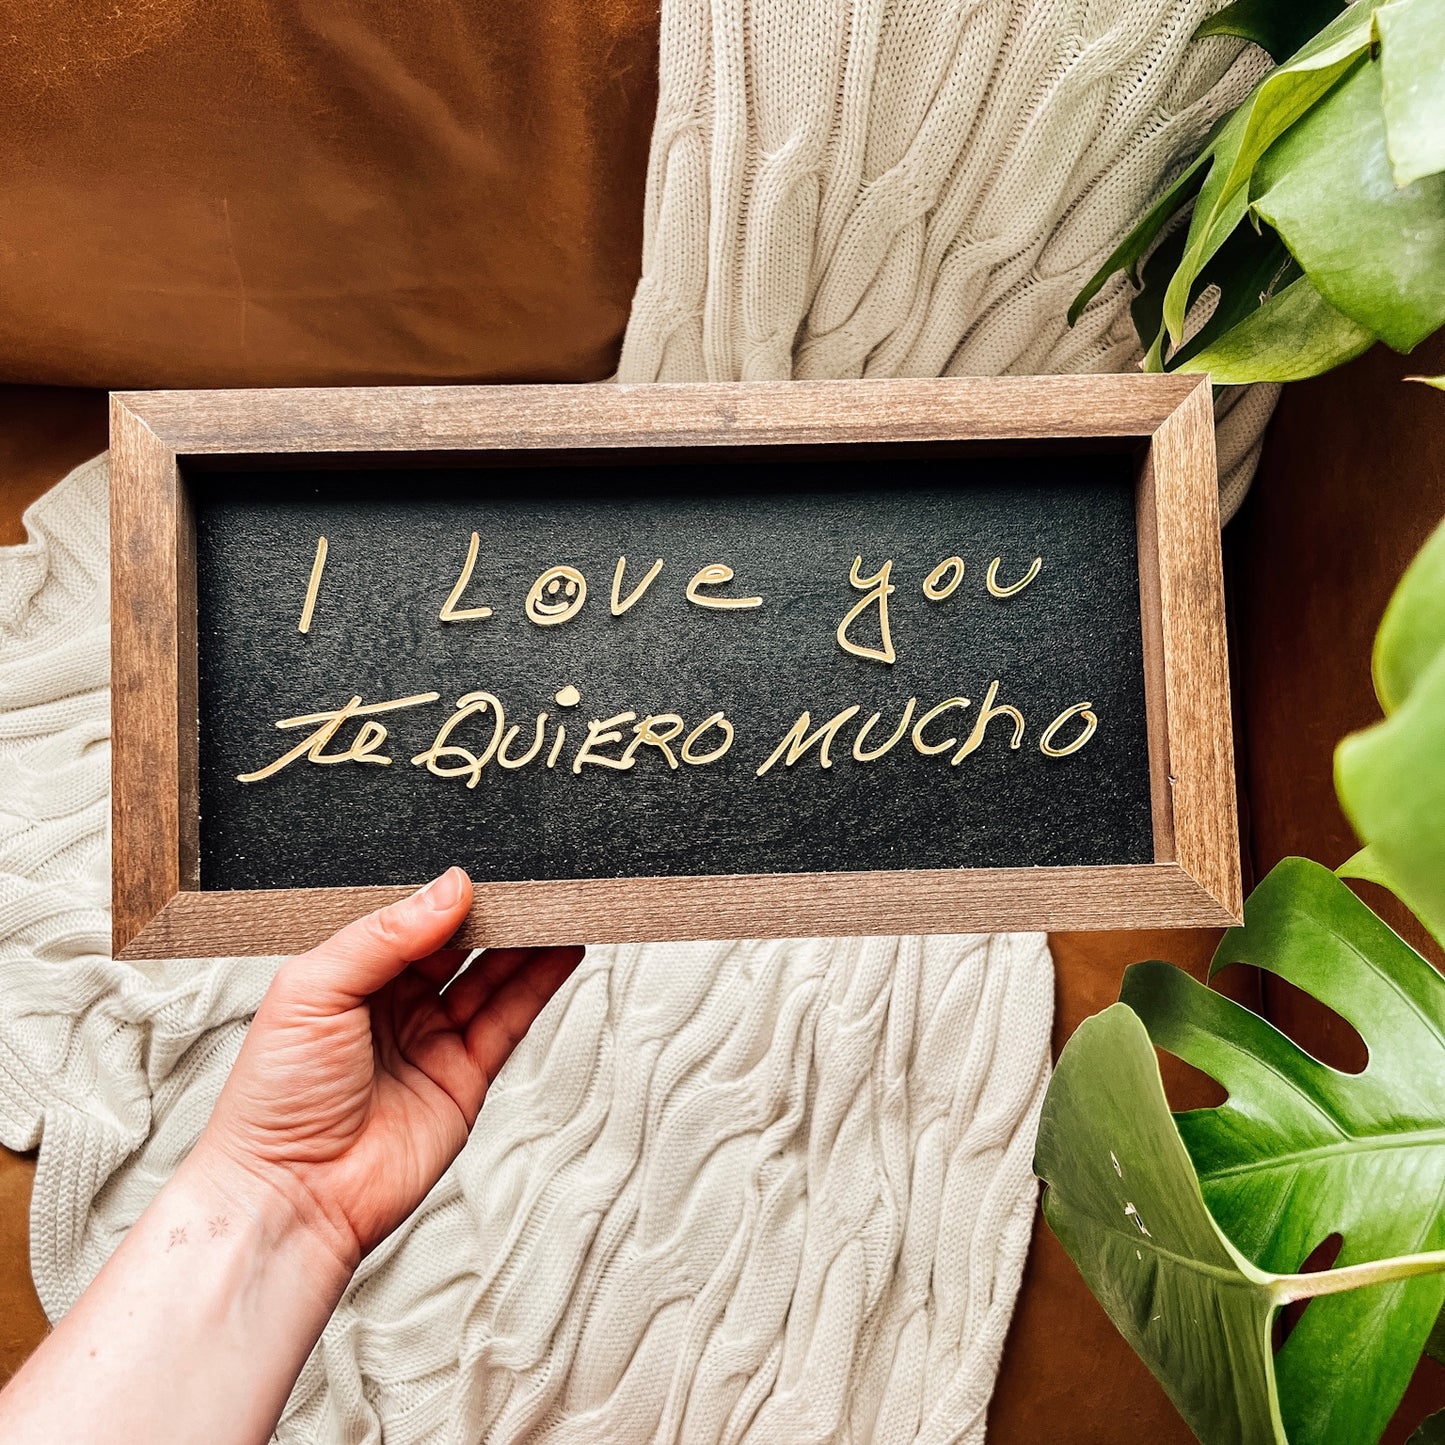 I Love you
te QUiERO MUCho